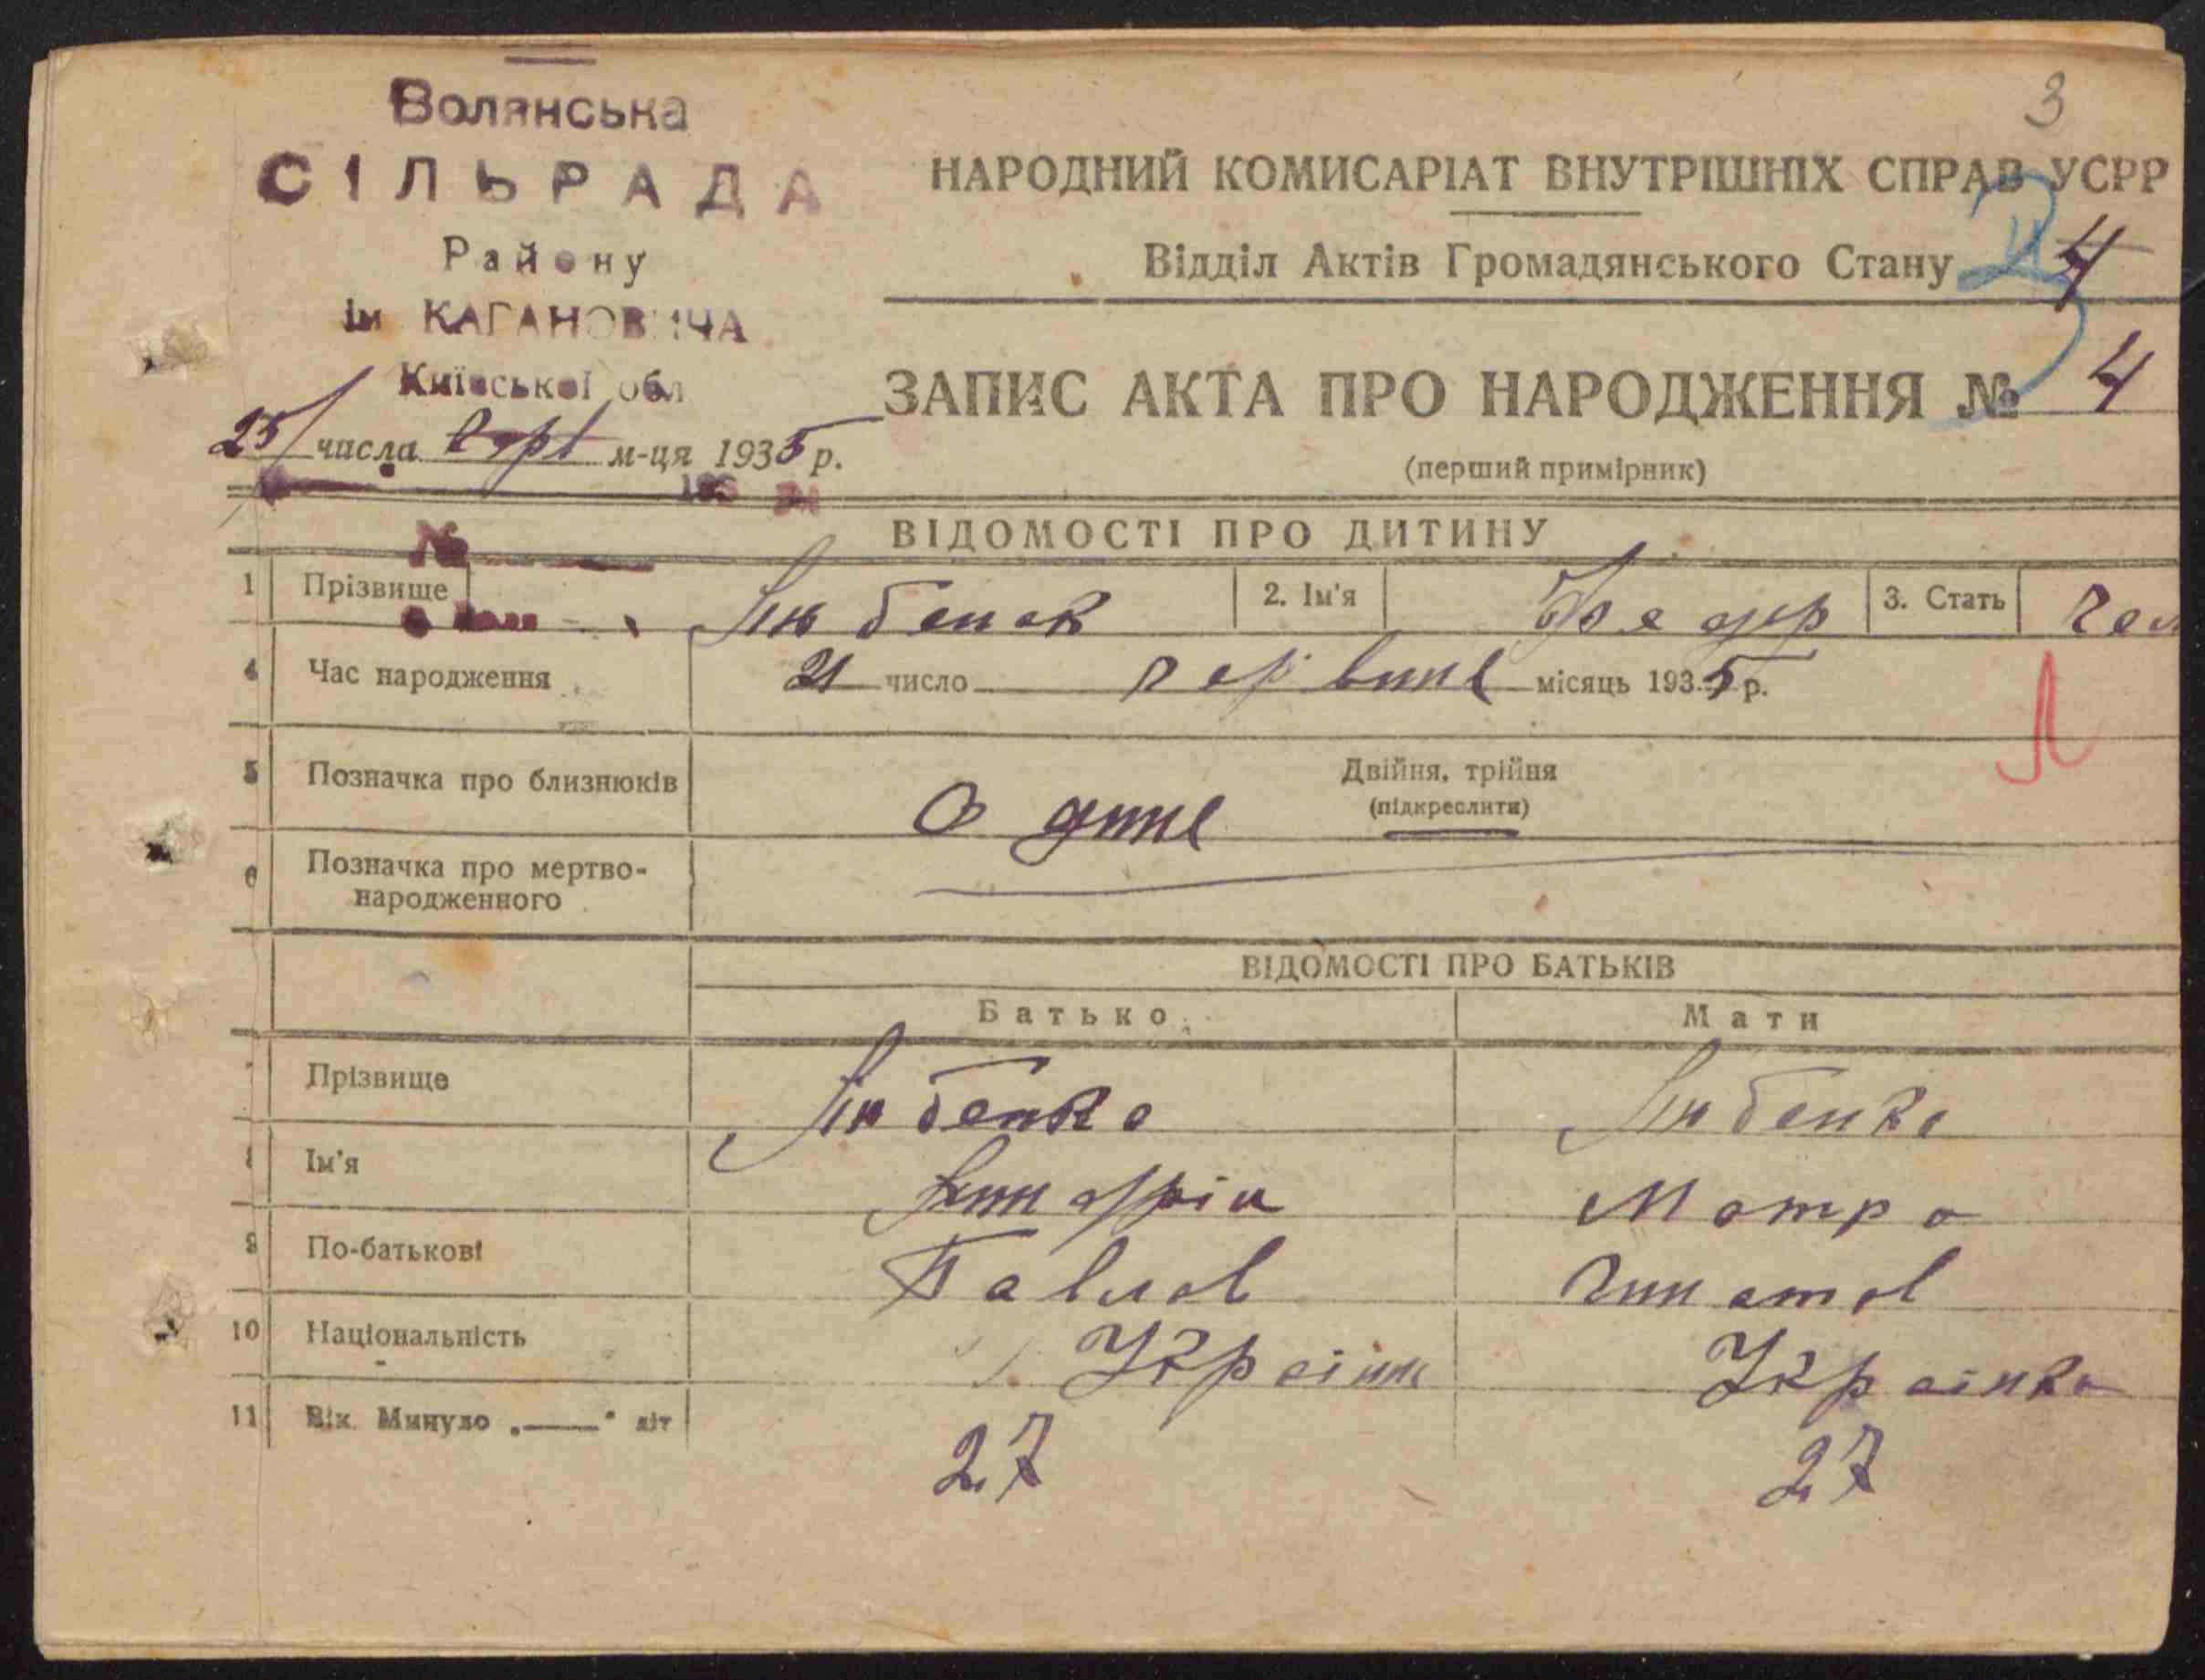 3
Волянська
СІЛЬРАДА
Району
ім КАГАНОВИЧА
Київської обл
НАРОДНИЙ КОМИСАРІАТ ВНУТРІШНІХ СПРАВ УСРР
Відділ Актів Громадянського Стану 4
ЗАПИС АКТА ПРО НАРОДЖЕННЯ № 4
25 числа серп м-ця 1935 р.
(перший примірник)
193
№
ВІДОМОСТІ ПРО ДИТИНУ
1 Прізвище 2. Ім'я Федір 3. Стать чол
4 Час народження 21 число червине місяць 1935 р.
5 Позначка про близнюків одине Двійня, трійня
(підкреслити)
6 Позначка про мертво-
народженного
Л
ВІДОМОСТІ ПРО БАТЬКІВ
Батько Мати
Прізвище
Ім'я Андрій Мотра
9 По-батькові Павлов
10 Національність Україн Українка
11 Вік. Минуло „——" літ 27 27